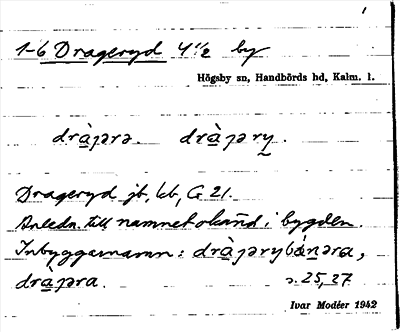 1
1-6 Drageryd 4 1/2 by
Högsby sn, Handbörds hd, Kalm. l.
dràȷərə. dràȷəry.
Drageryd jb, kb, G 21.
Anledn. till namnet okänd i bygden.
Inbyggarnamn: dràȷərybánəra,
dràȷəra. s. 25, 27
Ivar Modéer 1942